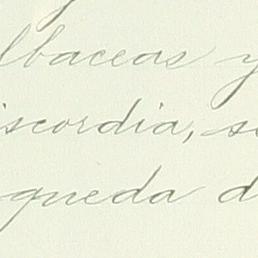 lbaceas y
iscordia, s
queda d